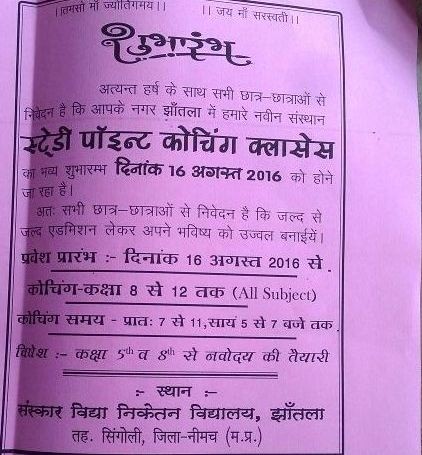 ।।तमसो माँ ज्योतिगमय।। ।। जय माँ सरस्वती।।
शुभारंभ
अत्यन्त हर्ष के साथ सभी छात्र-छात्राओं से
निवेदन है कि आपके नगर झाँतला में हमारे नवीन संस्थान
स्ट्रेडी पॉइन्ट कोचिंग क्लासेस
का भव्य शुभारम्भ दिनांक 16 अगस्त 2016 को होने
जा रहा है।
अतः सभी छात्र-छात्राओं से निवेदन है कि जल्द से
जल्द एडमिशन लेकर अपने भविष्य को उज्वल बनाईयें।
प्रवेश प्रारंभ :- दिनांक 16 अगस्त 2016 से .
कोचिंग-कक्षा 8 से 12 तक (All Subject)
कोचिंग समय - प्रातः 7 से 11,सायं 5 से 7 बजे तक .
विषेश :- कक्षा 5th व 8th से नवोदय की तैयारी
:- स्थान :-
संस्कार विद्या निकेतन विद्यालय, झाँतला
तह. सिंगोली, जिला-नीमच (म.प्र.)